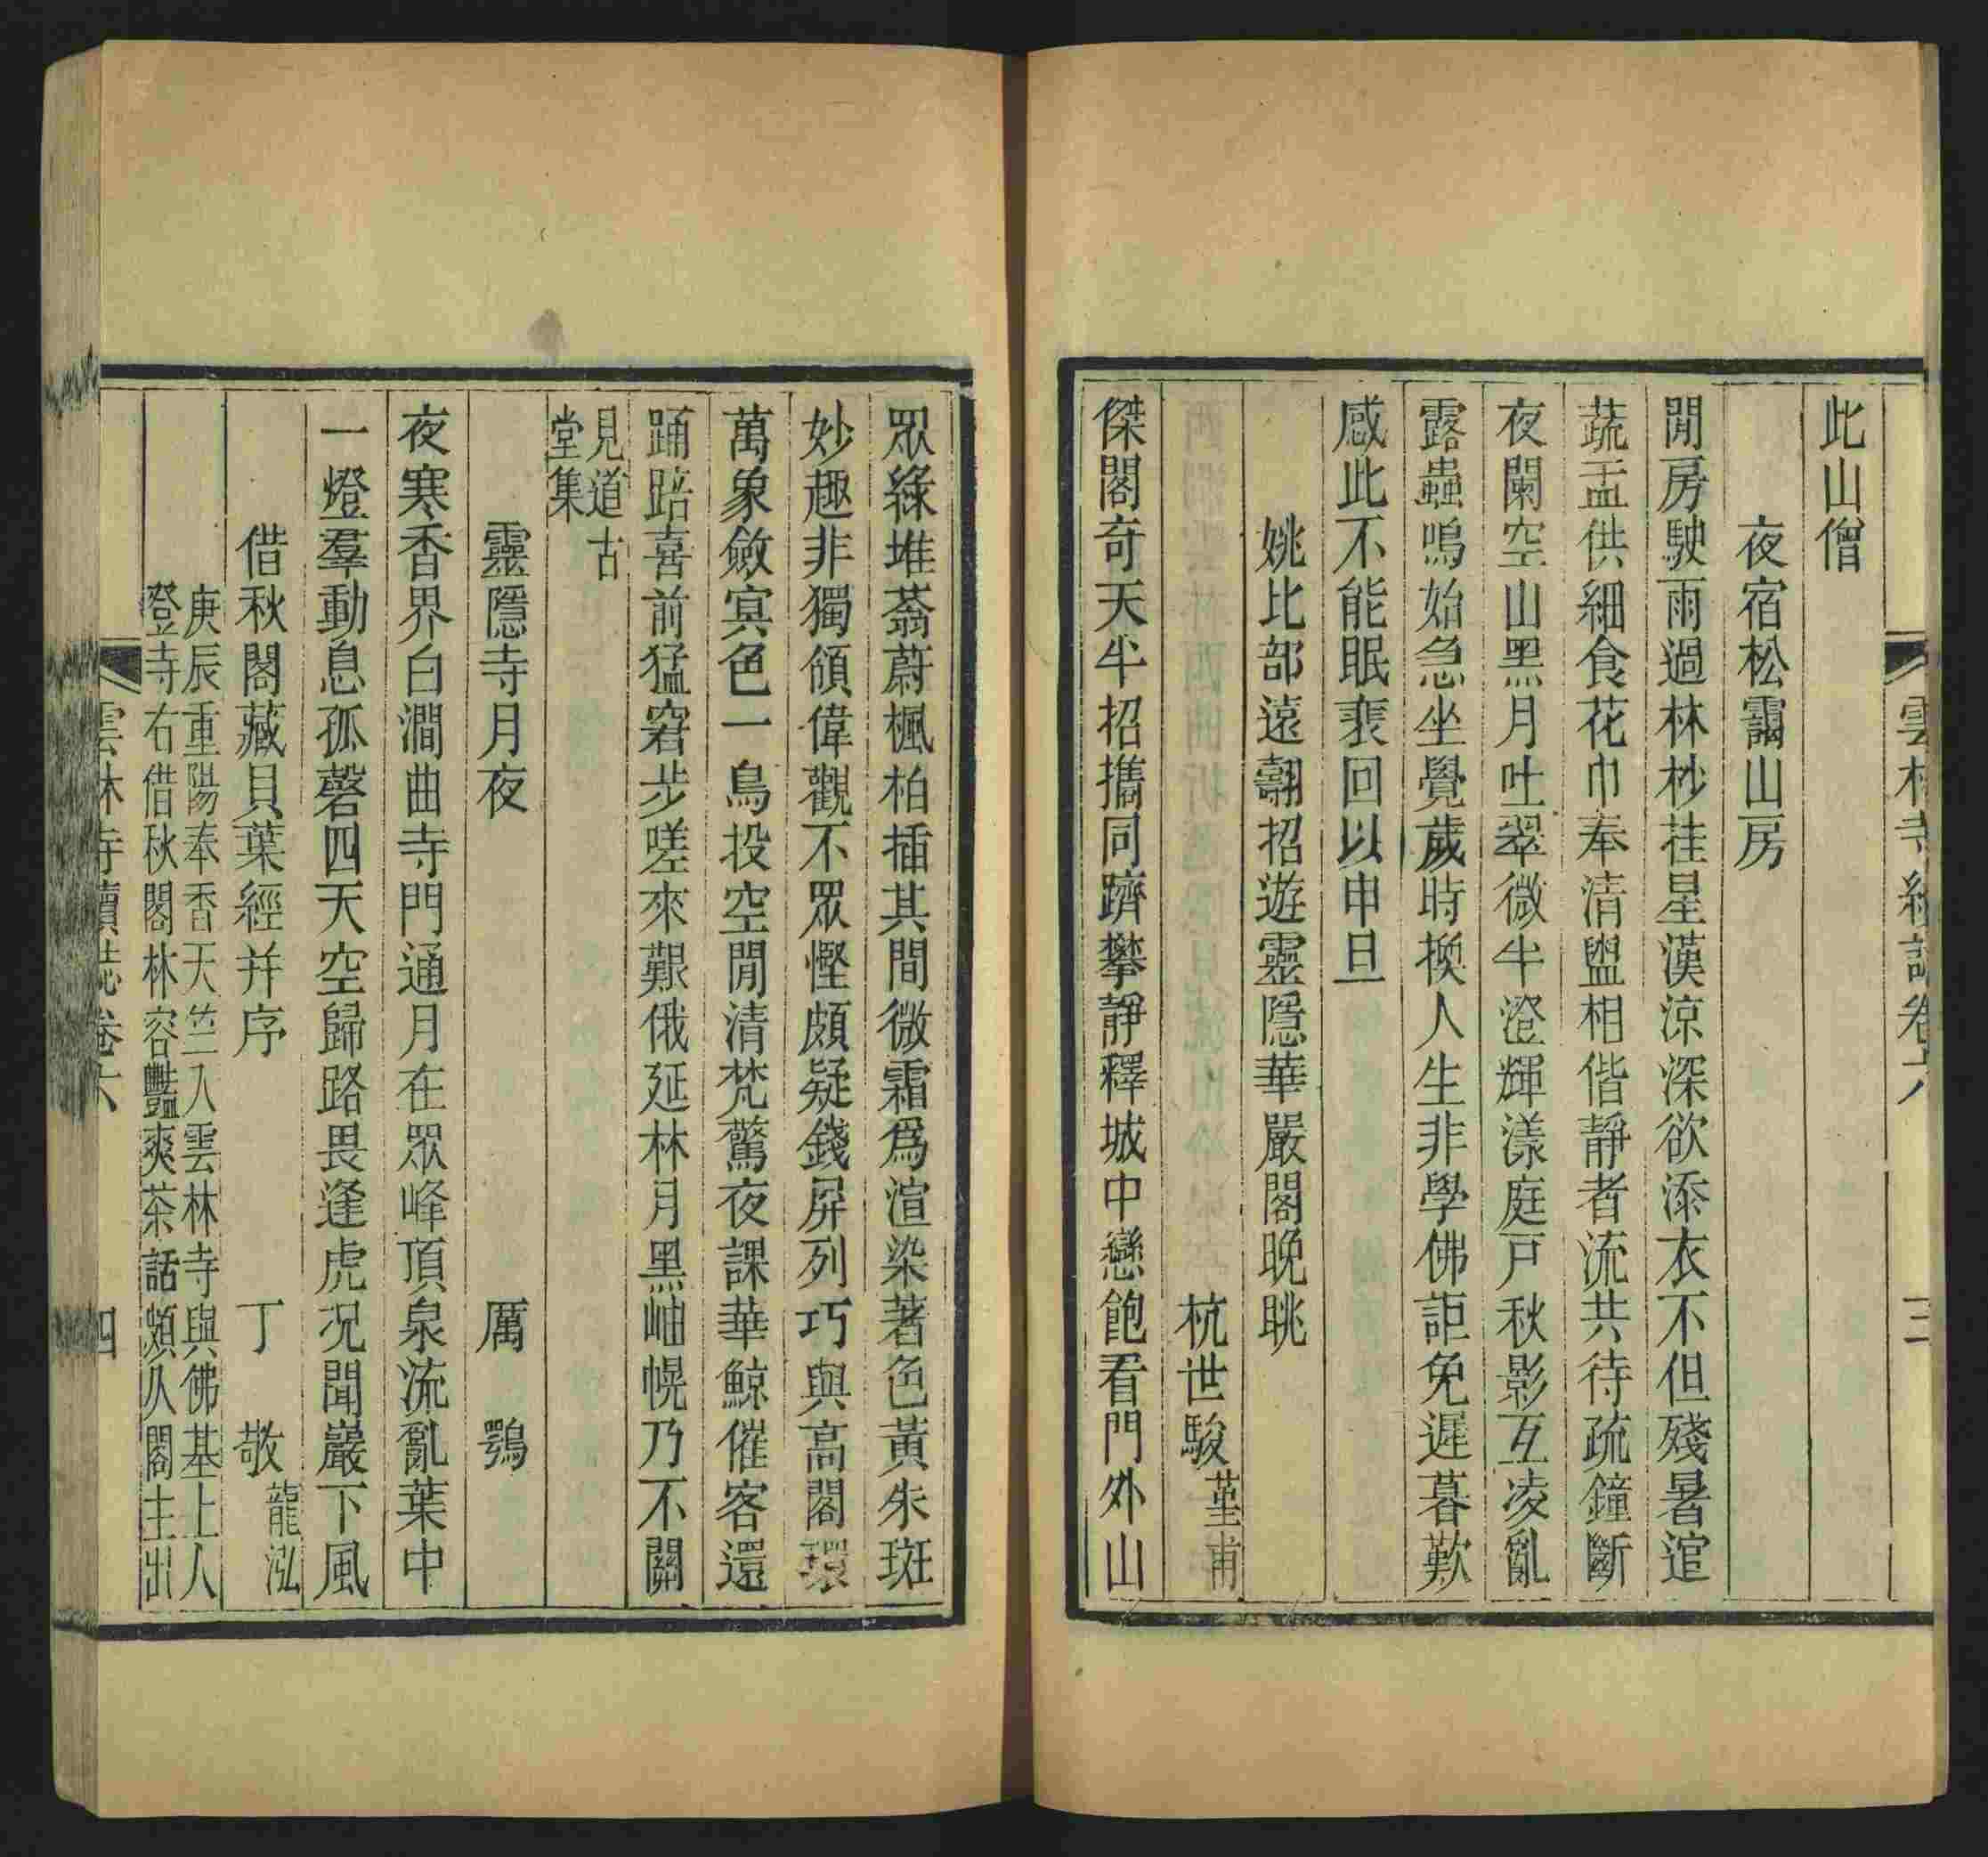 雲林寺續誌卷六
三
此山僧
夜宿松靄山房
閒房駛雨過林杪挂星漢涼深欲添衣不但殘暑逭
蔬盂供細食花巾奉清盥相偕靜者流共待疏鐘斷
夜闌空山黑月吐翠微半澄輝漾庭戸秋影互凌亂
露蟲鳴始急坐覺歲時換人生非學佛詎免遲暮歎
感此不能眠裴回以申旦
姚比部遠翿招遊靈隱華嚴閣晚眺
杭世駿 堇甫
傑閣奇天半招攜同躋攀靜釋城中戀飽看門外山
眾綠堆蓊蔚楓柏插其間微霜爲渲染著色黃朱斑
妙趣非獨領偉觀不眾慳頗疑錢屏列巧與高閣環
萬象斂冥色一鳥投空閒清梵驚夜課華鯨催客還
踊踣喜前猛窘步嗟來艱俄延林月黑岫幌乃不關
見道古
堂集
靈隱寺月夜 厲 鶚
夜寒香界白澗曲寺門通月在眾峰頂泉流亂葉中
一燈羣動息孤磬四天空歸路畏逢虎况聞巖下風
借秋閣藏貝葉經幷序 丁 敬 龍泓
庚辰重陽奉香天竺入雲林寺與佛基上人
登寺右借秋閣林容豔爽茶話頗久閣主出
雲林寺續誌卷六
四